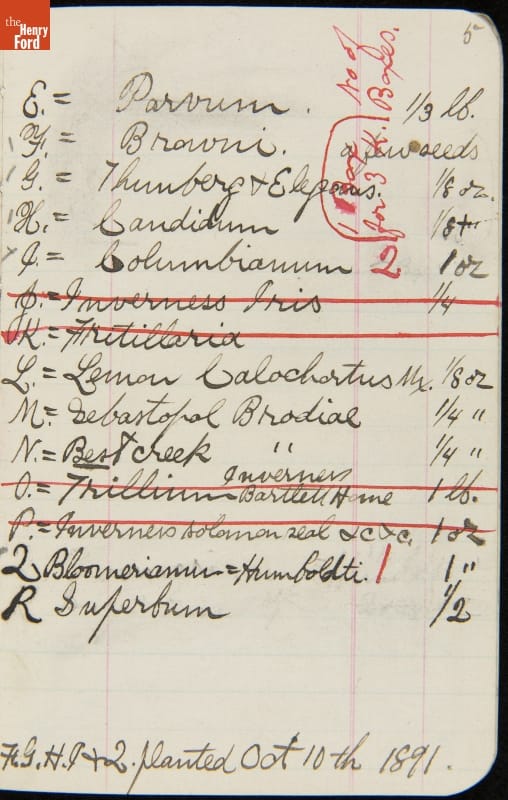 the
Henry
Ford
5
No of Boxes.
1 Box
2 for 3 K.
E. = Parvum. 1/3 lb.
F. = Browni. a few seeds
G. = Thunberg & Elegans. 1/8 oz.
H. = Candidum 1/8 "
I. = Columbianum 1 oz
J. = Inverness Iris 1/4
K. = Fritillaria
L. = Lemon Calochortus Mx. 1/8 oz
M. = Sebastopol Brodiae 1/4 "
N. = Best creek " 1/4 "
Inverness
O. = Trillium Bartlett Home 1 lb.
P. = Inverness solomon seal &c &c. 1 oz
Q Bloomerianum = Humboldti. 1 1 "
R Superbum 1/2
F. G. H. I & Q. planted Oct 10th 1891.